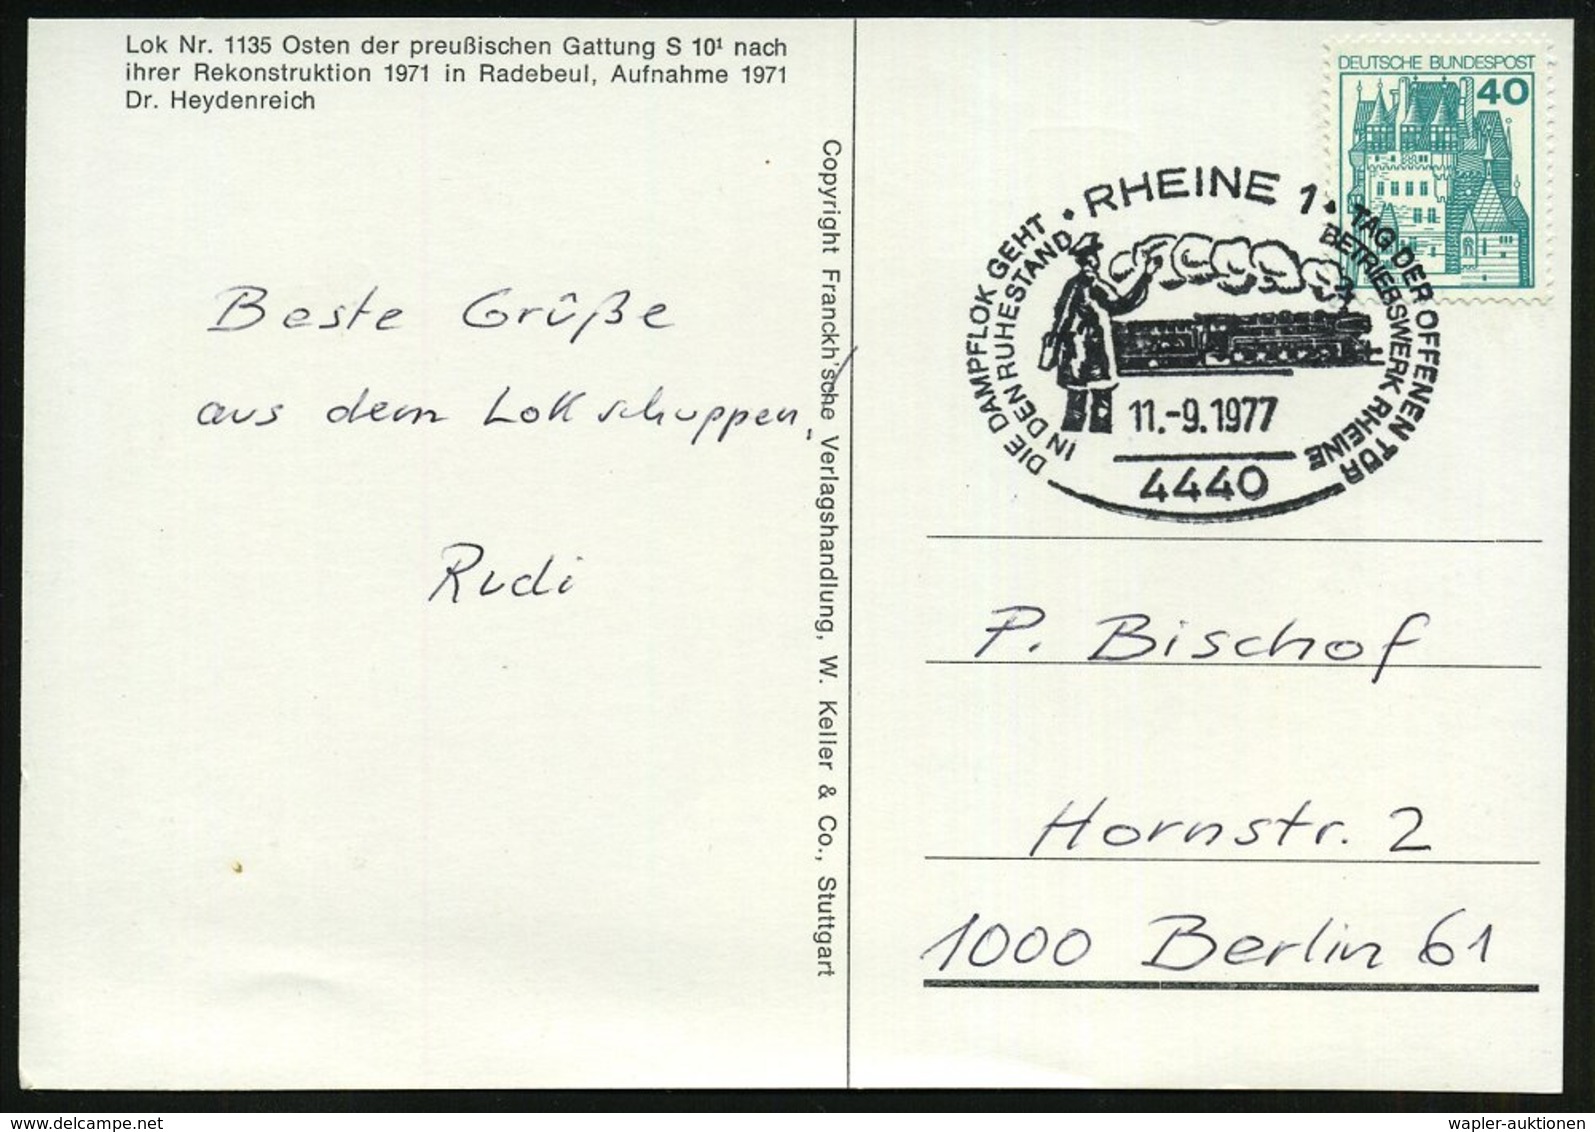 Lok Nr. 1135 Osten der preußischen Gattung S 10¹ nach
ihrer Rekonstruktion 1971 in Radebeul, Aufnahme 1971
Dr. Heydenreich
Beste Grüße
aus dem Lokschuppen,
Rudi
Copyright Franckh'sche Verlagshandlung, W. Keller & Co., Stuttgart
DEUTSCHE BUNDESPOST
40
• RHEINE 1 •
DIE DAMPFLOK GEHT
IN DEN RUHESTAND
TAG DER OFFENEN TÜR
BETRIEBSWERK RHEINE
11.-9.1977
4440
P. Bischof
Hornstr. 2
1000 Berlin 61
www.delcampe.net
wapler-auktionen